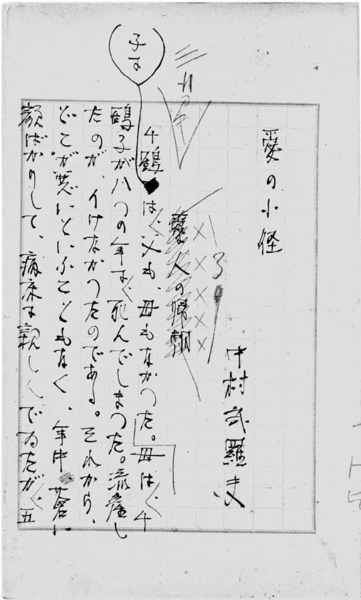 愛の小径
中村武羅夫
人の帰朝
3
子に
千鶴は、父も、母もなかつた。母は、千
鶴子が八つの年に、死んでしまつた。流産し
たのが、いけなかつたのである。それから、
どこが悪いといふこともなく、年中蒼い
顔ばかりして、病床に親しんでゐたが、五